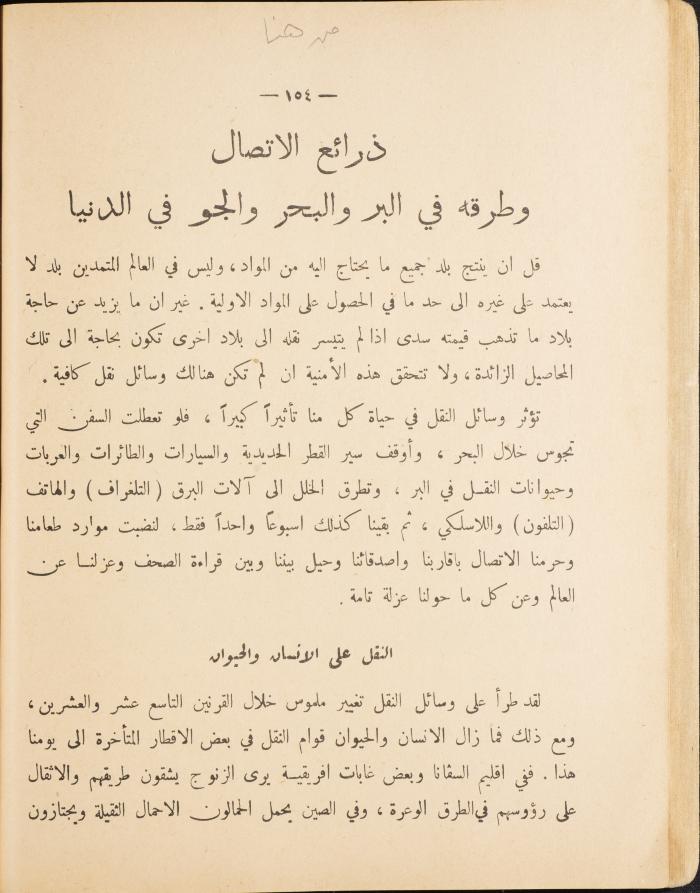 من هنا
— ١٥٤ —
ذرائع الاتصال
وطرقه في البر والبحر والجو في الدنيا
قل ان ينتج بلد جميع ما يحتاج اليه من المواد، وليس في العالم المتمدين بلد لا
يعتمد على غيره الى حد ما في الحصول على المواد الاولية . غير ان ما يزيد عن حاجة
بلاد ما تذهب قيمته سدى اذا لم يتيسر نقله الى بلاد اخرى تكون بحاجة الى تلك
المحاصيل الزائدة، ولا تتحقق هذه الأمنية ان لم تكن هنالك وسائل نقل كافية .
تؤثر وسائل النقل في حياة كل منا تأثيراً كبيراً ، فلو تعطلت السفن التي
تجوس خلال البحر ، وأوقف سير القطر الحديدية والسيارات والطائرات والعربات
وحيوانات النقل في البر ، وتطرق الخلل الى آلات البرق (التلغراف) والهاتف
(التلفون) واللاسلكي ، ثم بقينا كذلك اسبوعاً واحداً فقط، لنضبت موارد طعامنا
وحرمنا الاتصال باقاربنا واصدقائنا وحيل بيننا وبين قراءة الصحف وعزلنا عن
العالم وعن كل ما حولنا عزلة تامة .
النقل على الانسان والحيوان
لقد طرأ على وسائل النقل تغيير ملموس خلال القرنين التاسع عشر والعشرين،
ومع ذلك فما زال الانسان والحيوان قوام النقل في بعض الاقطار المتأخرة الى يومنا
هذا . ففي اقليم السڤانا وبعض غابات افريقية يرى الزنوج يشقون طريقهم والاثقال
على رؤوسهم في الطرق الوعرة ، وفي الصين يحمل الحمالون الاحمال الثقيلة ويجتازون